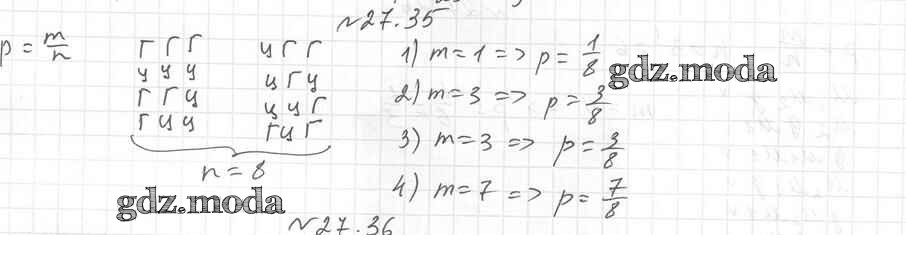 №27.35
p = m/n
Г Г Г   Ц Г Г
Ц Ц Ц   Ц Г Ц
Г Г Ц   Ц Ц Г
Г Ц Ц   Г Ц Г
n = 8
1) m = 1 => p = 1/8
2) m = 3 => p = 3/8
3) m = 3 => p = 3/8
4) m = 7 => p = 7/8
gdz.moda
gdz.moda
№27.36